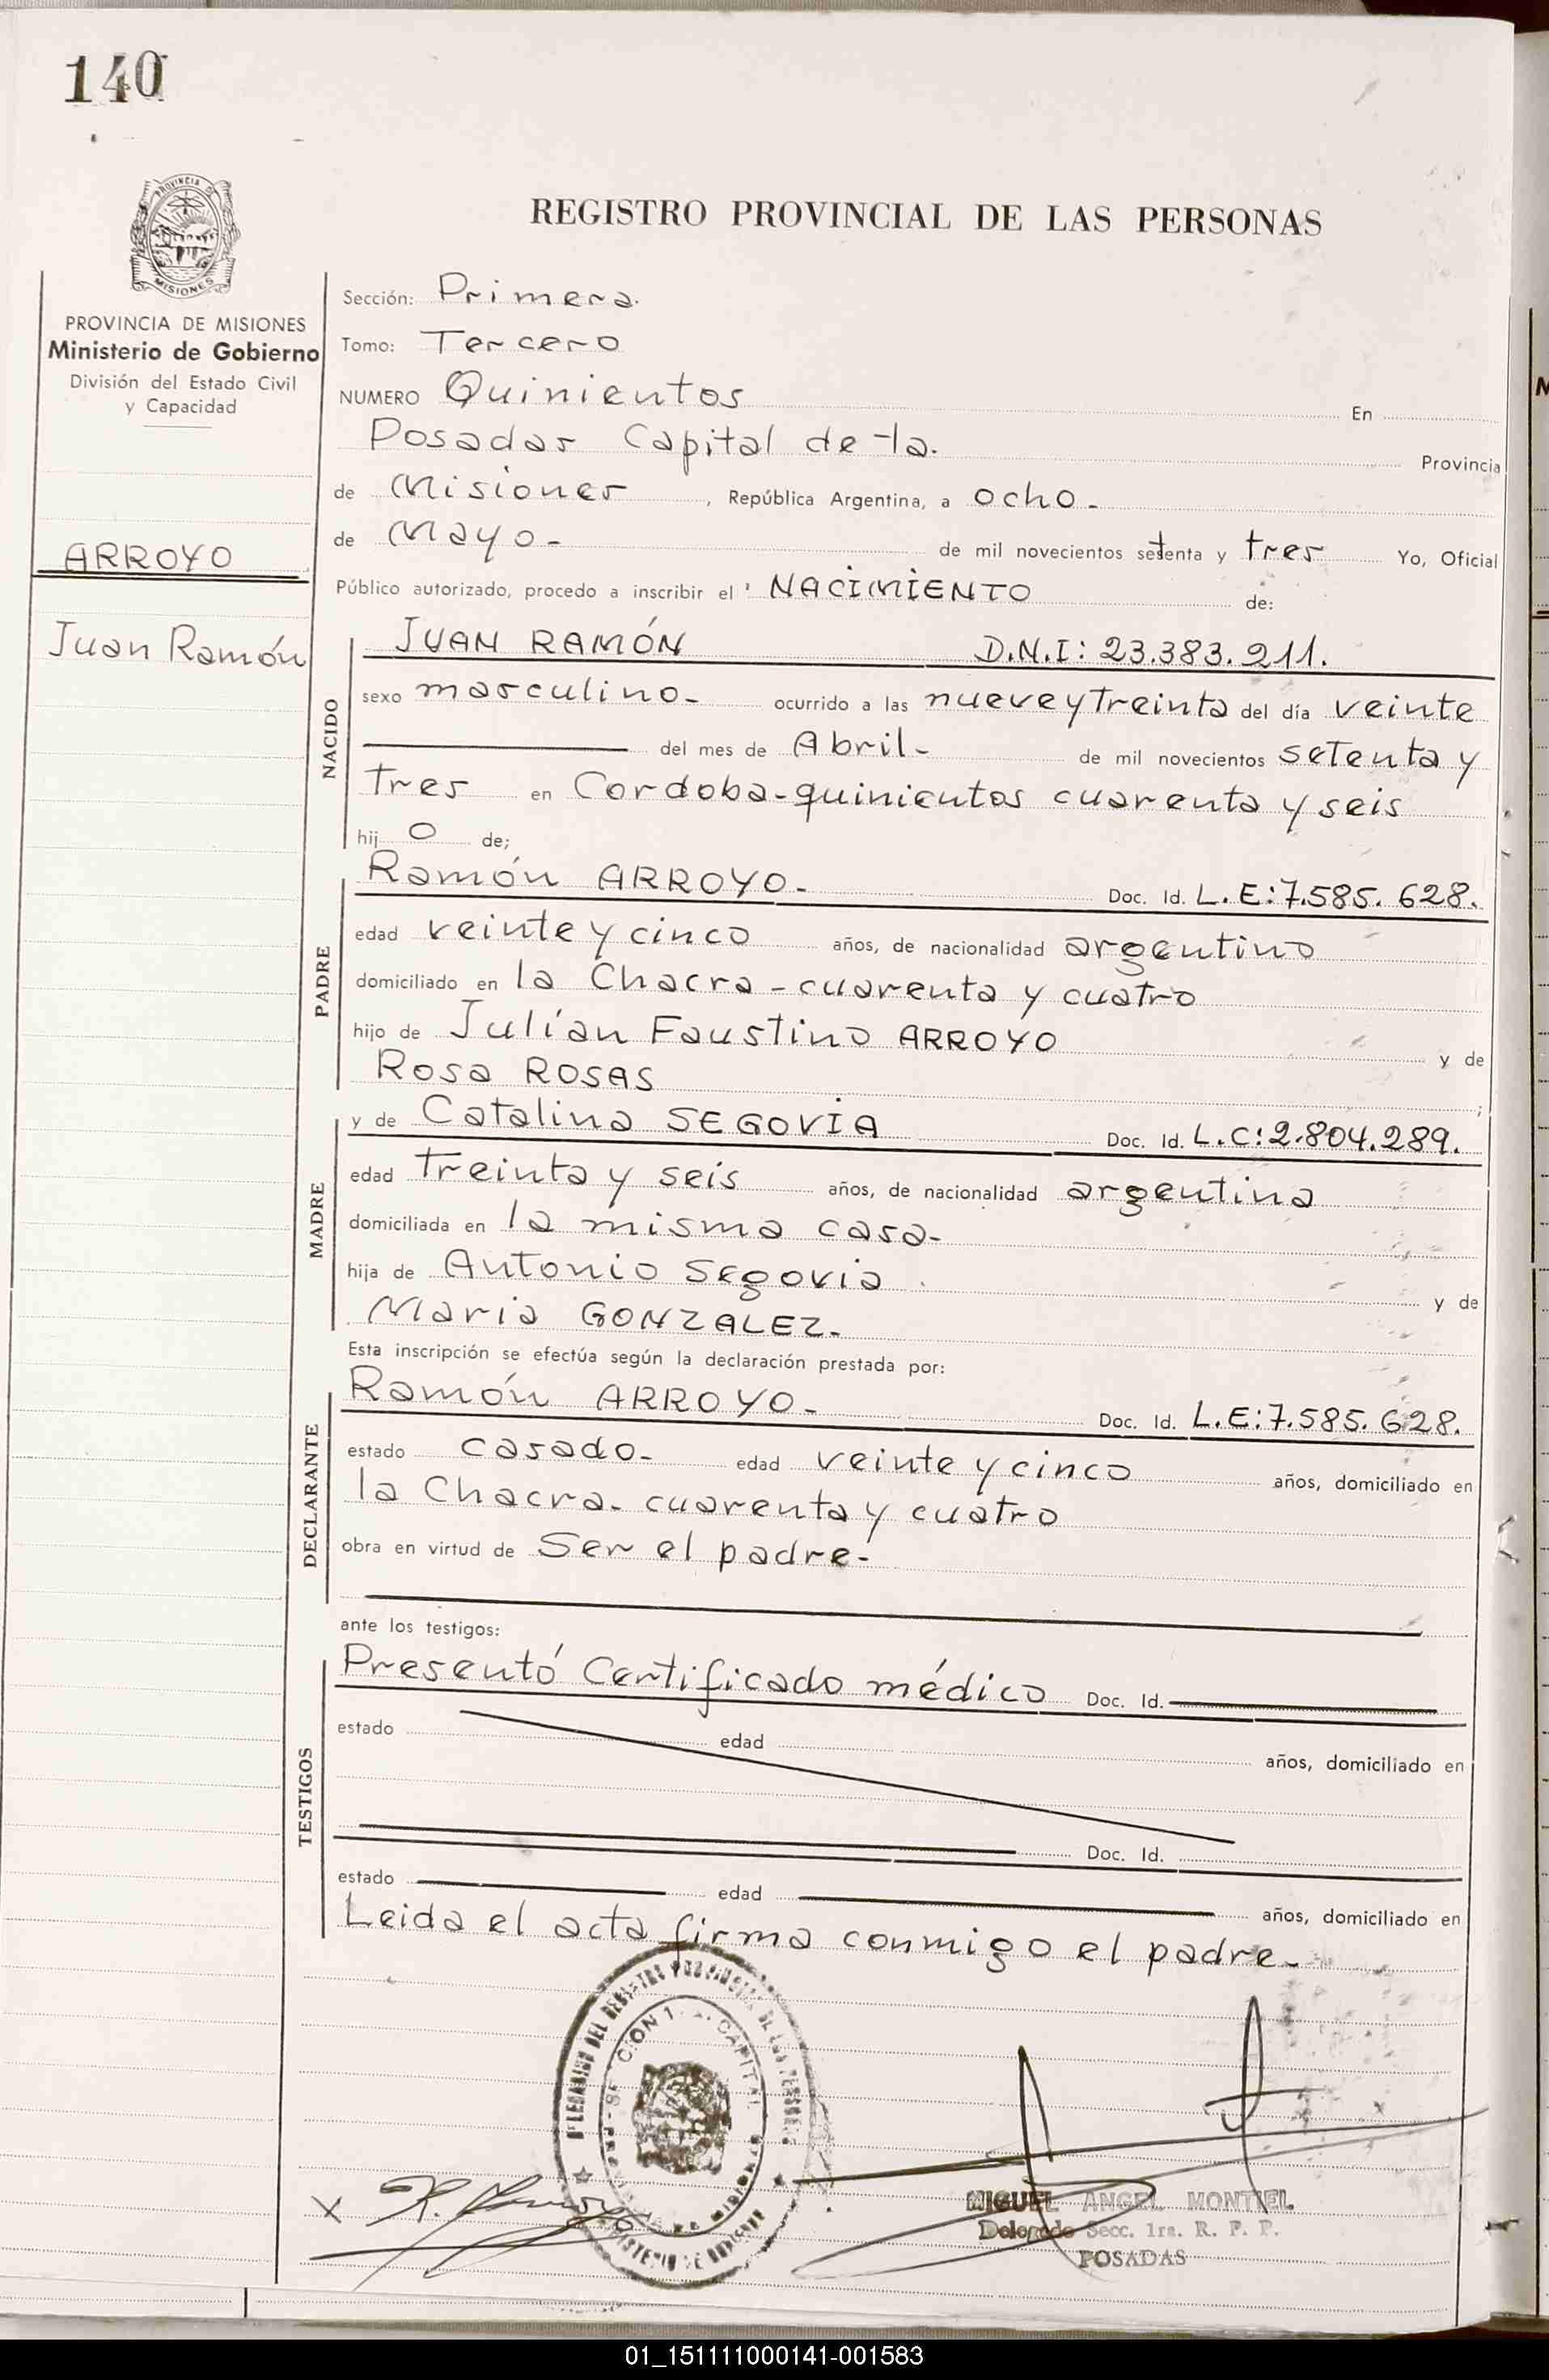 140
PROVINCIA DE
MISIONES
REGISTRO PROVINCIAL DE LAS PERSONAS
PROVINCIA DE MISIONES
Ministerio de Gobierno
División del Estado Civil
y Capacidad
ARROYO
Juan Ramón
Sección: Primera.
Tomo: Tercero
NUMERO Quinientos En
Posadas Capital de la. Provincia
de Misiones, República Argentina, a ocho-
de Mayo- de mil novecientos setenta y tres Yo, Oficial
Público autorizado, procedo a inscribir el NACIMIENTO de:
NACIDO
JUAN RAMÓN D.N.I: 23.383.211.
sexo masculino- ocurrido a las nueve y treinta del día veinte
del mes de Abril- de mil novecientos setenta y
tres en Cordoba-quinientos cuarenta y seis
hij o de;
PADRE
Ramón ARROYO- Doc. Id. L.E:7.585.628.
edad veinte y cinco años, de nacionalidad argentino
domiciliado en la Chacra-cuarenta y cuatro
hijo de Julían Faustino ARROYO y de
Rosa ROSAS ;
MADRE
y de Catalina SEGOVIA Doc. Id. L.C:2.804.289.
edad treinta y seis años, de nacionalidad argentina
domiciliada en la misma casa-
hija de Antonio Segovia y de
Maria GONZALEZ-
Esta inscripción se efectúa según la declaración prestada por:
DECLARANTE
Ramón ARROYO- Doc. Id. L.E:7.585.628.
estado casado- edad veinte y cinco años, domiciliado en
la Chacra-cuarenta y cuatro
obra en virtud de Ser el padre-
ante los testigos:
TESTIGOS
Presentó Certificado médico Doc. Id.
estado edad años, domiciliado en
Doc. Id.
estado edad años, domiciliado en
Leida el acta firma conmigo el padre-
DEL REGISTRO PROVINCIAL DE LAS PERSONAS
CAPITAL
x
MIGUEL ANGEL MONTIEL
Delegado Secc. 1ra. R. P. P.
POSADAS
01_151111000141-001583